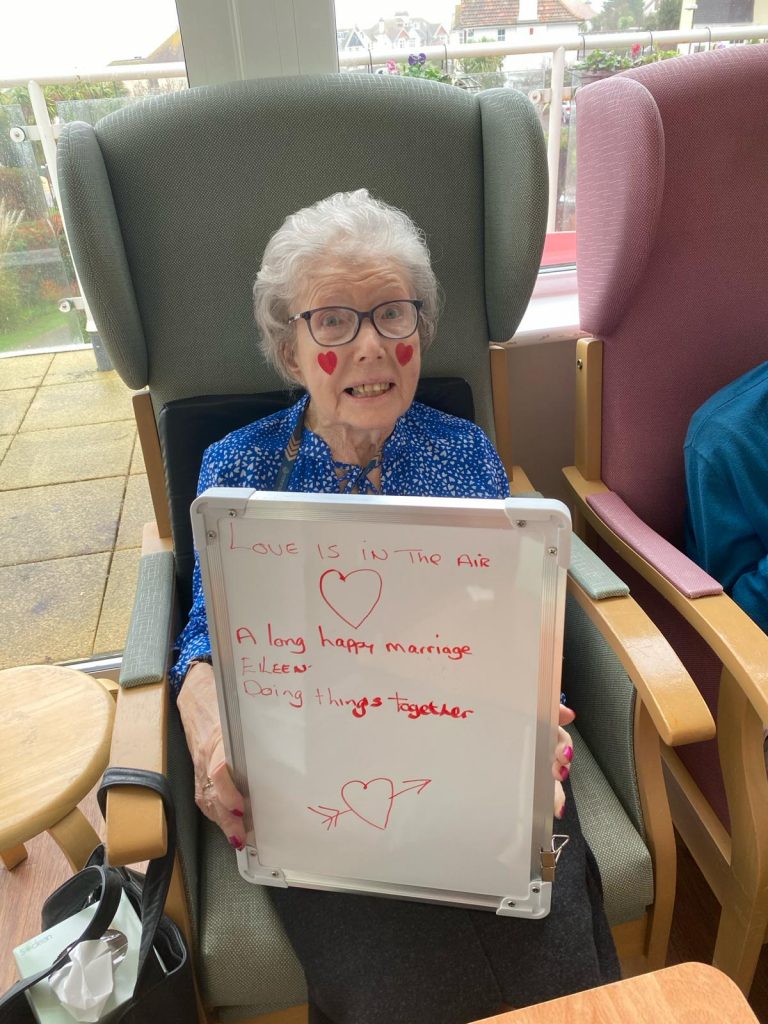 LOVE IS IN THE AIR
A long happy marriage
EILEEN-
Doing things together